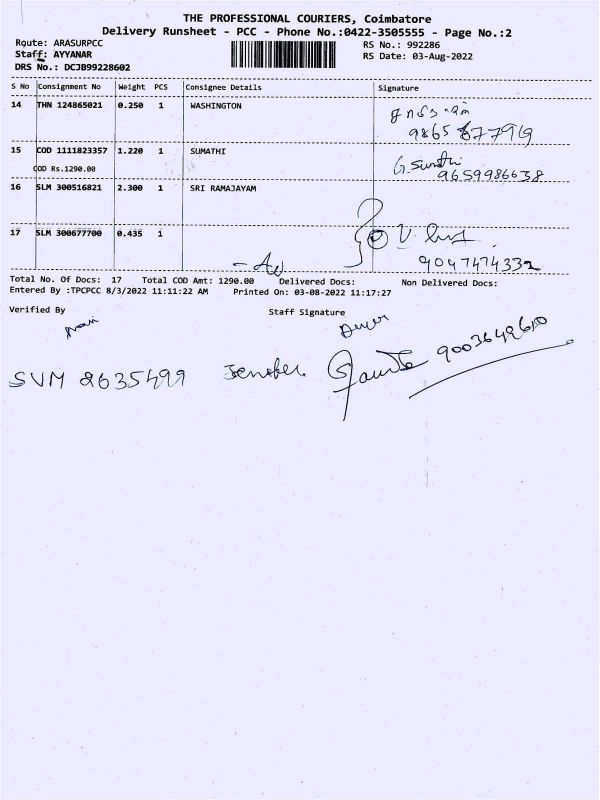 THE PROFESSIONAL COURIERS, Coimbatore
Delivery Runsheet - PCC - Phone No.:0422-3505555 - Page No.:2
Route: ARASURPCC
Staff: AYYANAR
DRS No.: DCJB99228602
RS No.: 992286
RS Date: 03-Aug-2022
S No Consignment No Weight PCS Consignee Details Signature
14 THN 124865021 0.250 1 WASHINGTON
15 COD 1111823357 1.220 1 SUMATHI
COD Rs.1290.00
9659986638
16 SLM 300516821 2.300 1 SRI RAMAJAYAM
17 SLM 300677700 0.435 1
9047474332
Total No. Of Docs: 17 Total COD Amt: 1290.00 Delivered Docs: Non Delivered Docs:
Entered By :TPCPCC 8/3/2022 11:11:22 AM Printed On: 03-08-2022 11:17:27
Verified By Staff Signature
SVM 2635499 Jenefer